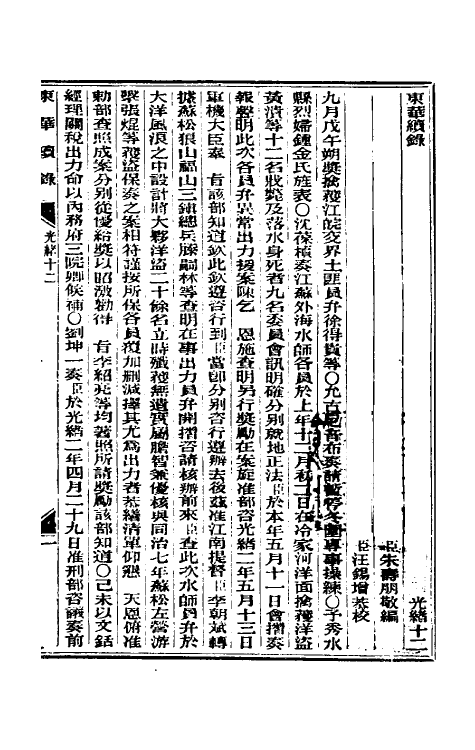 東華續錄
光緒十二
臣朱壽朋敬編
臣汪錫增恭校
九月戊午朔獎擒獲江皖交界土匪員弁徐得貴等○允
縣烈婦鍾金氏旌表○沈葆楨奏江蘇外海水師各員於上年十二月初二日在冷家河洋面擒獲洋盜
黃濆等十二名戕斃及落水身死者九名委員會訊明確分別就地正法臣於本年五月十一日會摺奏
報聲明此次各員弁異常出力援案陳乞 恩施查明另行獎勵在案旋准部咨光緒二年五月十三日
軍機大臣奉 旨該部知道欽此欽遵咨行到臣當卽分別咨行遵辦去後茲准江南提督臣李朝斌轉
據蘇松狼山福山三鎮總兵滕嗣林等查明在事出力員弁開摺咨請核辦前來臣查此次水師員弁於
大洋風浪之中設計將大夥洋盜二十餘名立時殲獲無遺實屬膽智兼優核與同治七年蘇松左營游
擊張焜等獲盜保奏之案相符謹按所保各員覆加刪減擇其尤爲出力者恭繕清單仰懇 天恩俯准
勅部查照成案分別從優給獎以昭激勸得 旨李紹
等均著照所請獎勵該部知道○己未以文銛
經理關稅出力命以內務府三院卿候補○劉坤一奏臣於光緒二年四月二十九日准刑部咨議奏前
東華續錄
光緒十二
一